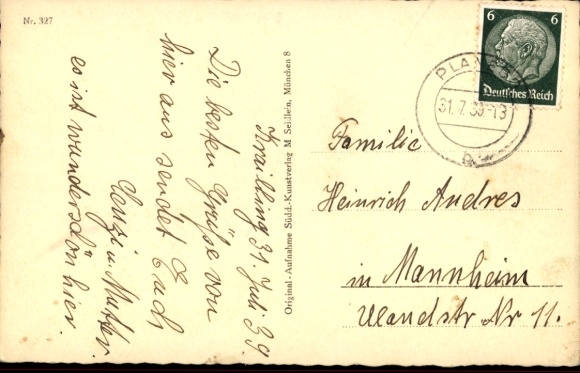 Nr. 327
Krailling 31. Juli 39.
Die besten Grüße von
hier aus sendet Euch
Cenzi u. Mutter.
es ist wunderschön hier.
Original-Aufnahme Südd.-Kunstverlag M Seidlein, München 8
6 6
Deutsches Reich
PLANEGG
31.7.39-13
Familie
Heinrich Andres
in Mannheim
Uландstr Nr 11.